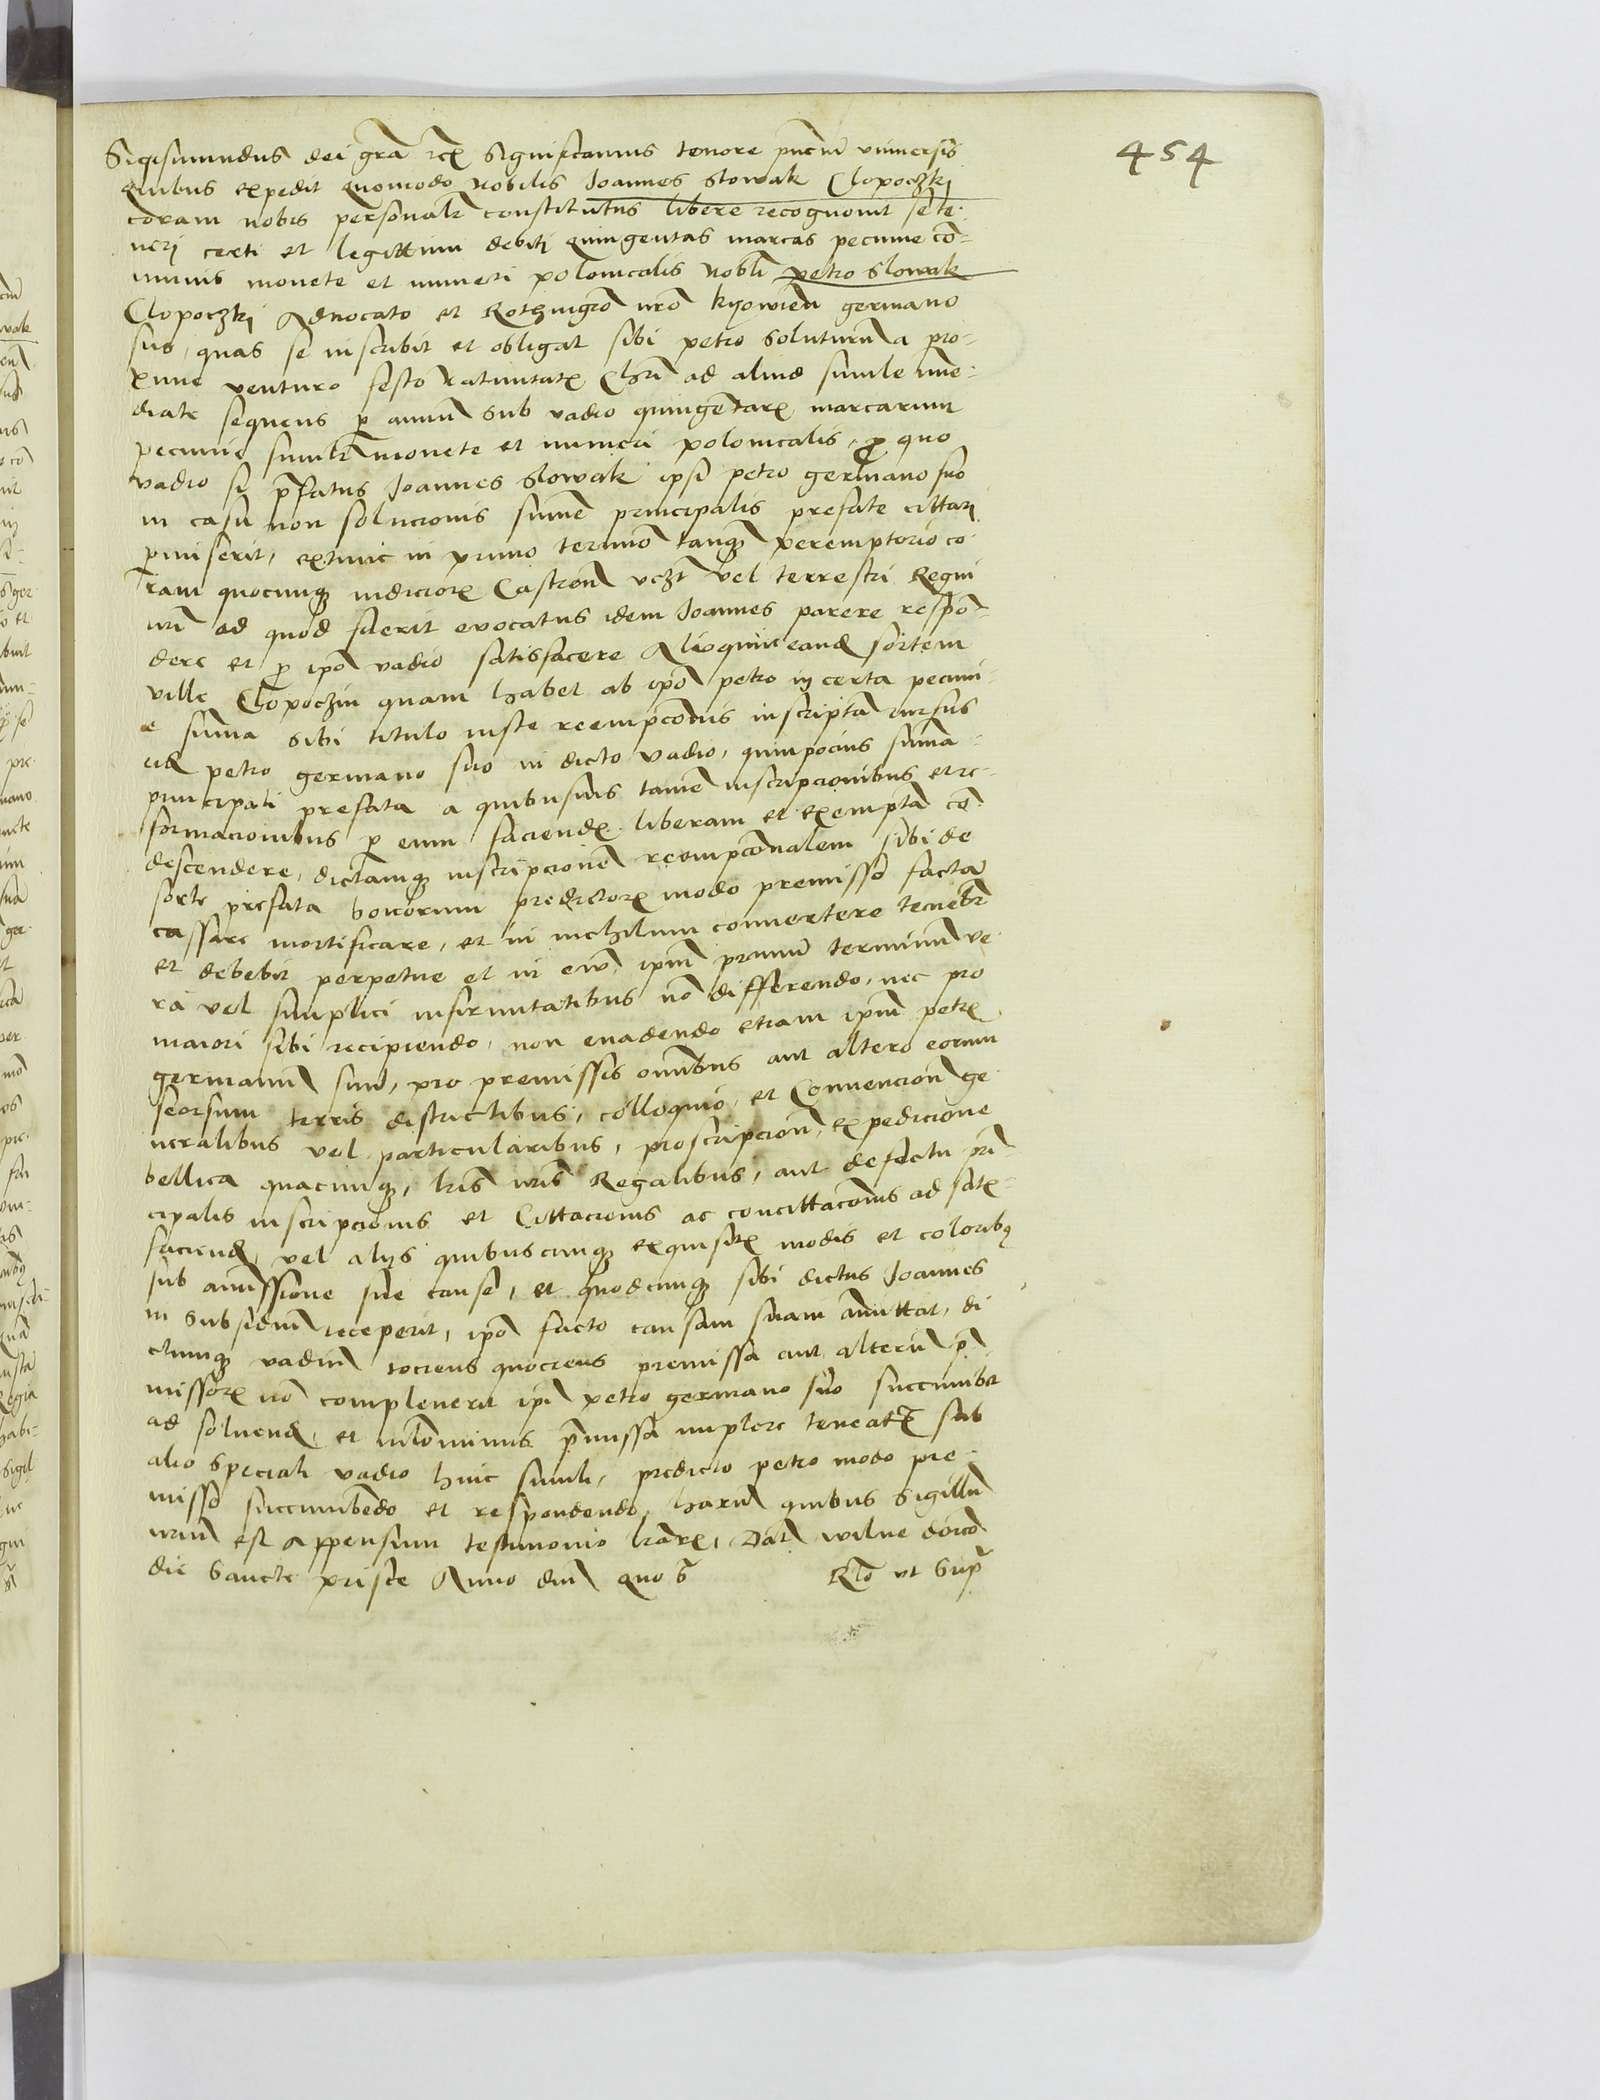 454
Sigismundus dei gra rex Significamus tenore pntium vniuersis
Quibus expedit Quomodo Nobilis Joannes Slowak Clopoczki
coram nobis personalr constitutus libere recognouit se te-
neri certi et legittimi debiti quingentas marcas pecunie co-
munis monete et numeri polonicalis Nobli petro Slowak
Clopoczki Aduocato et Rothmgro nro kyowien germano
suo, quas se inscribit et obligat sibi petro soluturum a pro-
xime venturo festo Natiuitatis Chri ad aliud simile imme-
diate sequens p annum sub vadio quingentarum marcarum
pecunie similr monete et numeri polonicalis, p quo
vadio si pfatus Joannes Slowak ipsi petro germano suo
in casu non solucionis summe principalis prefate cittari
pmiserit, extunc in primo termino tanq peremptorio co-
ram quocunq iudiciorum Castren vczt vel terrestri Regni
nri ad quod fuerit evocatus idem Joannes parere respon-
dere et p ipo vadio satisfacere Alioquin eand sortem
ville Clopoczin quam habet ab ipo petro in certa pecuni-
e summa sibi titulo iuste reempconis inscriptam rursus
eid petro germano suo in dicto vadio, quinpocius summa
principali prefata a quibusuis tamen inscripcionibus et re-
formacionibus p eum faciend liberam et exemptam con-
descendere, dictamq inscripcionem reempconalem sibi de
sorte prefata bonorum predictorum modo premisso factam
cassare mortificare, et in nichilum conuertere tenebr
et debebit perpetue et in ewm ipm primum terminum ve-
ra vel simplici infirmitatibus no differendo, nec pro
maiori sibi recipiendo, non euadendo etiam ipm petrum
germanum suum, pro premissis omibus aut altero eorum
seorsum terris districtibus, colloquio, et Conuencion ge-
neralibus vel particularibus, proscripcion, expedicione
bellica quacunq, lris nris Regalibus, aut defectu prin-
cipalis inscripcionis et Cittacionis ac concittaconis ad satis-
faciend, vel alijs quibuscunq exquisitis modis et coloribus
sub amissione sue cause, et quodcunq sibi dictus Joannes
in subsidium receperit, ipo facto causam suam amittat, di-
ctumq vadium tociens quociens premissa aut alterum p-
missorum no compleuerit ipi petro germano suo succumbet
ad soluend, et nlominus pmissa implere teneatr sub
alio speciali vadio huic simili, predicto petro modo pre-
misso succumbendo et respondendo, harum quibus Sigillum
nrum est Appensum testimonio lrarum, Dat wilne dominico
die Sancte prisce Anno dni quo s
Rlo vt supr